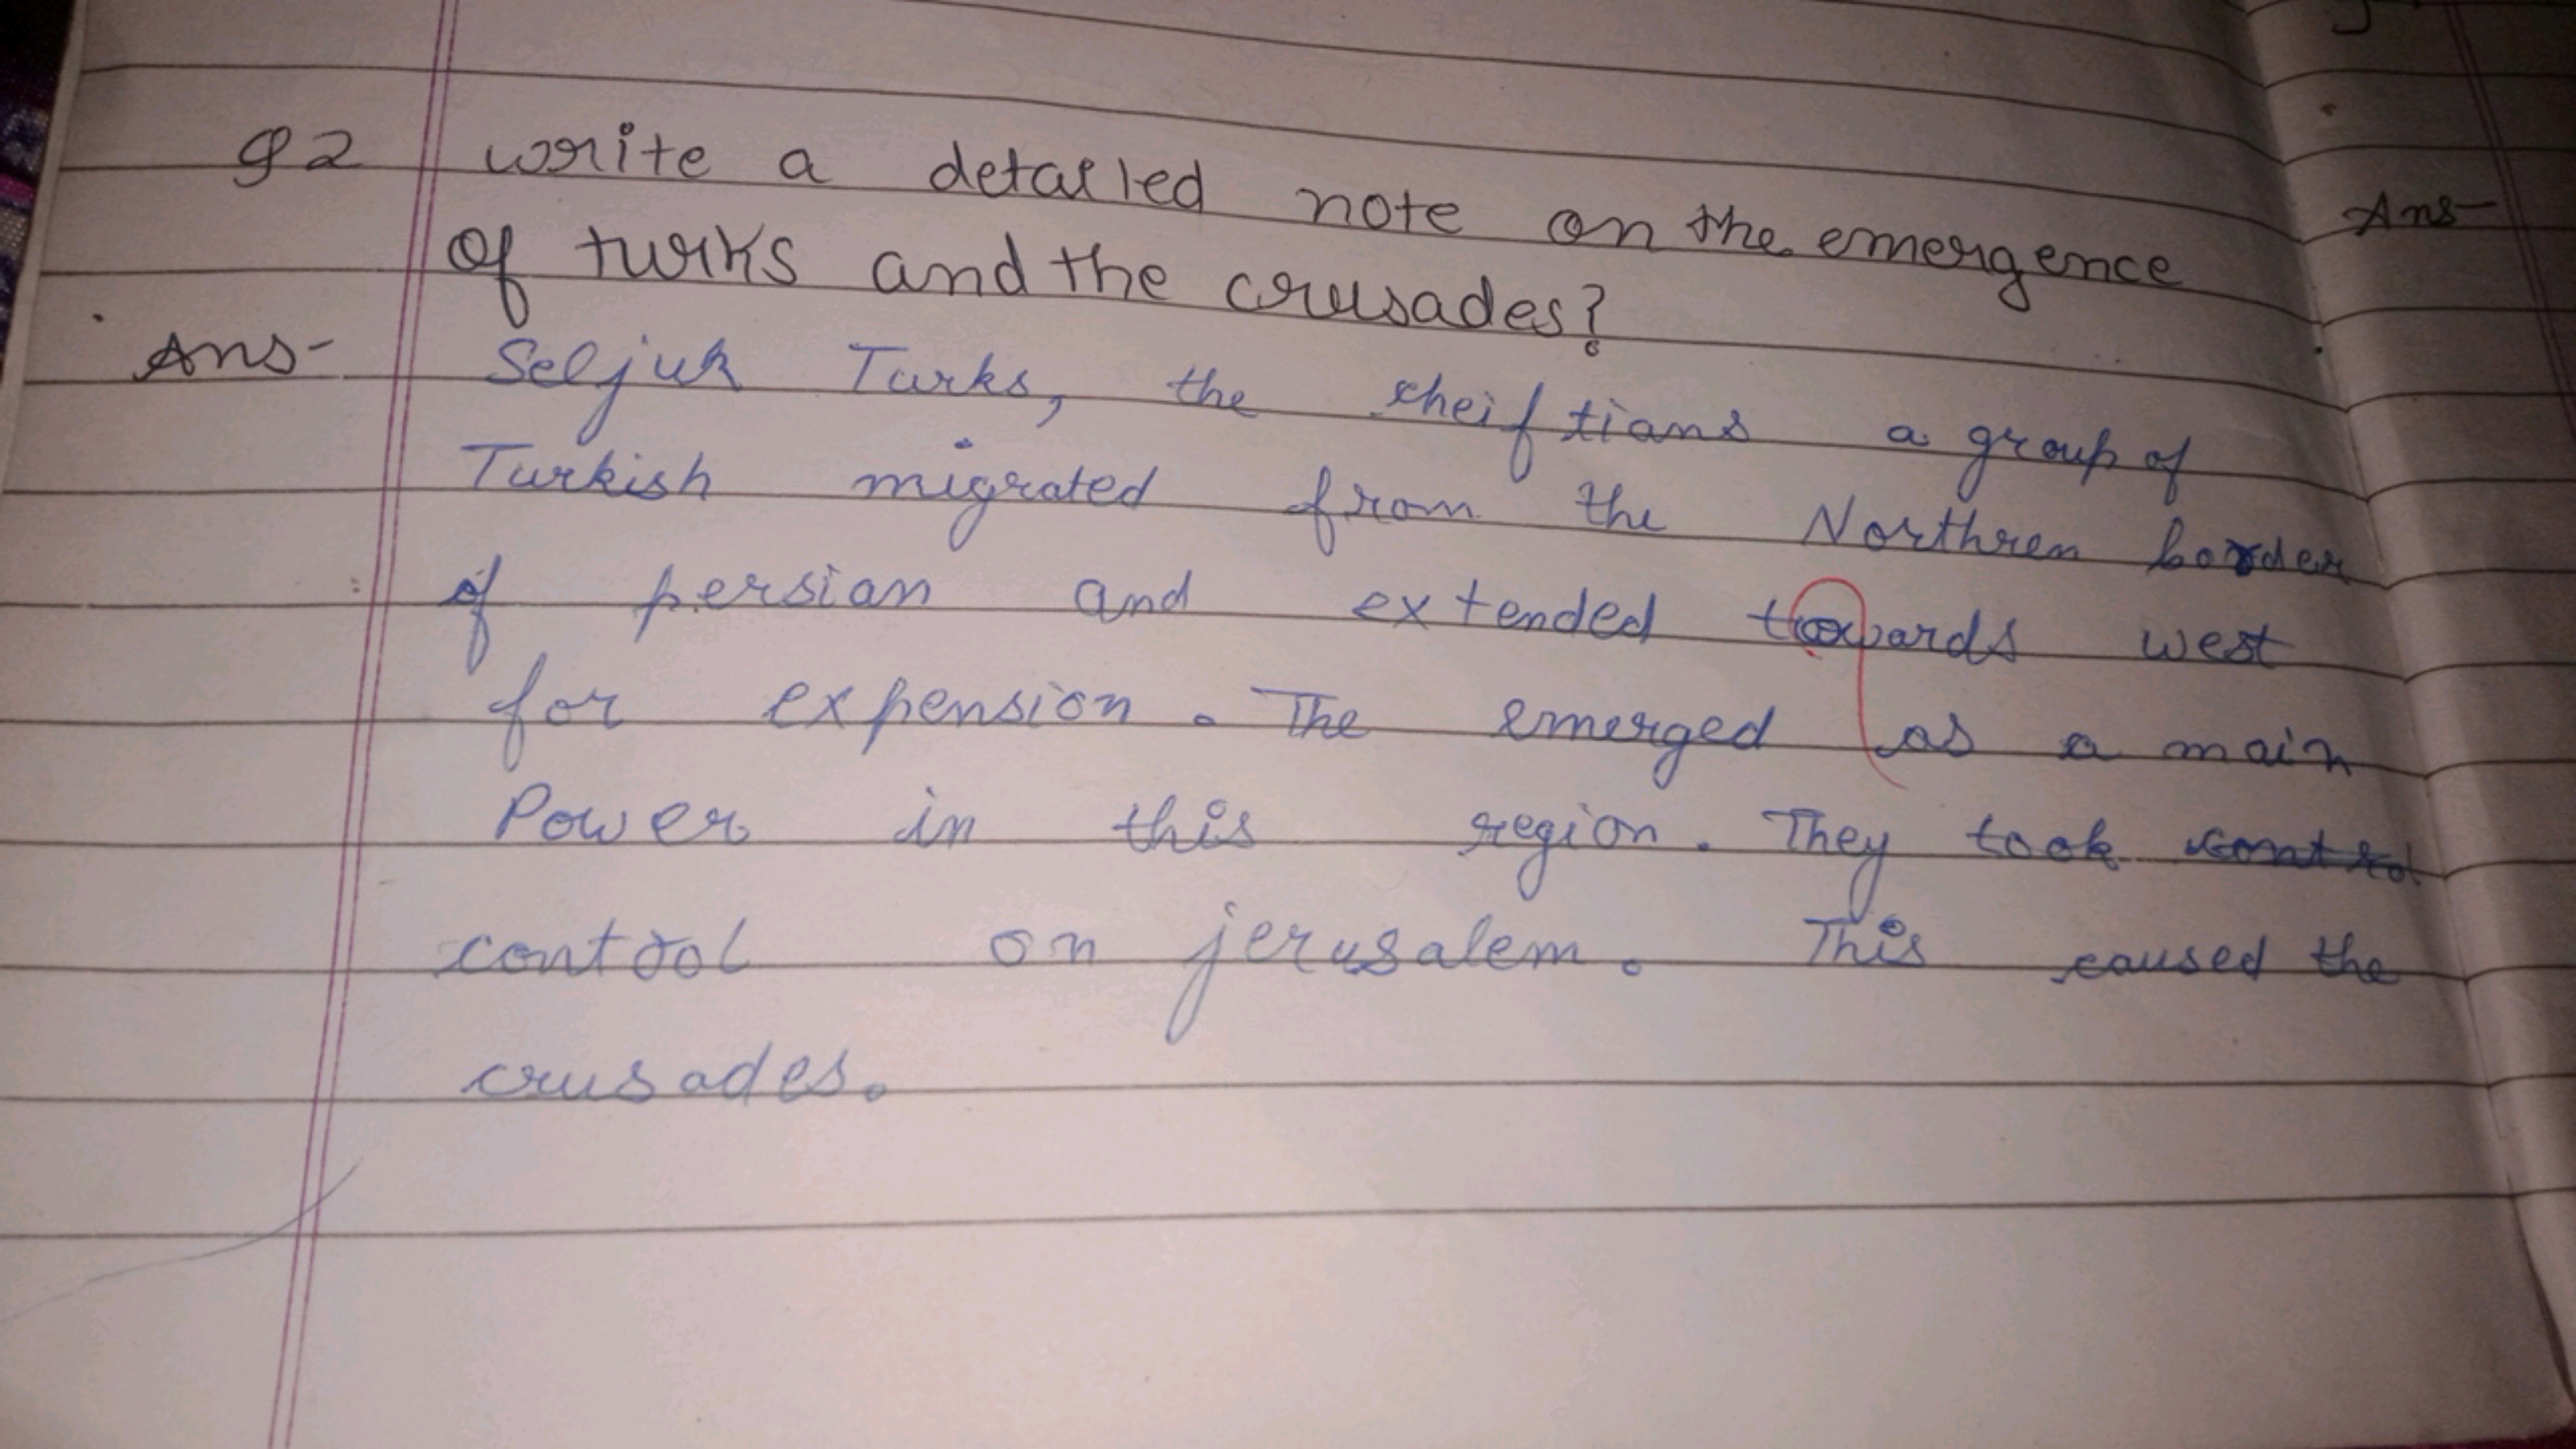 Q2 write a detailed note on the emergence
of turks and the crusades?
Ans- Seljuk Turks, the cheiftians a group of
Turkish migrated from the Northren border
of persian and extended towards west
for expension. The emerged as a main
Power in this region. They took control
control on jerusalem. This caused the
crusades.
Ans-